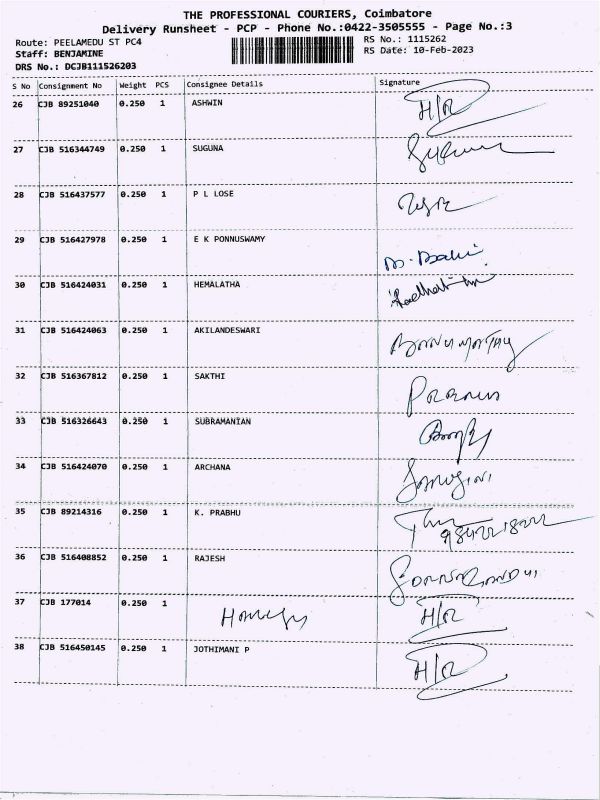 THE PROFESSIONAL COURIERS, Coimbatore
Delivery Runsheet - PCP - Phone No.:0422-3505555 - Page No.:3
Route: PEELAMEDU ST PC4
RS No.: 1115262
Staff: BENJAMINE
RS Date: 10-Feb-2023
DRS No.: DCJB111526203
S No Consignment No Weight PCS Consignee Details Signature
26 CJB 89251040 0.250 1 ASHWIN H/R
27 CJB 516344749 0.250 1 SUGUNA
28 CJB 516437577 0.250 1 P L LOSE
29 CJB 516427978 0.250 1 E K PONNUSWAMY
30 CJB 516424031 0.250 1 HEMALATHA
31 CJB 516424063 0.250 1 AKILANDESWARI
32 CJB 516367812 0.250 1 SAKTHI
33 CJB 516326643 0.250 1 SUBRAMANIAN
34 CJB 516424070 0.250 1 ARCHANA
35 CJB 89214316 0.250 1 K. PRABHU
36 CJB 516408852 0.250 1 RAJESH
37 CJB 177014 0.250 1 H/R
38 CJB 516450145 0.250 1 JOTHIMANI P H/R